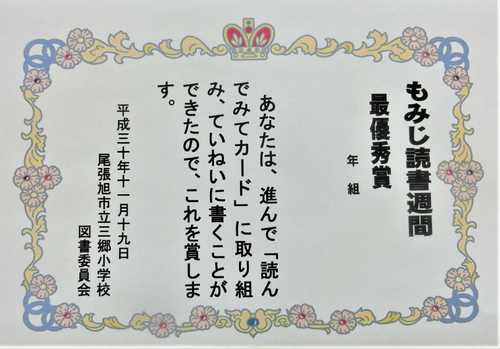 もみじ読書週間
最優秀賞
年 組
あなたは、進んで「読ん
でみてカード」に取り組
み、ていねいに書くことが
できたので、これを賞しま
す。
平成三十年十一月十九日
尾張旭市立三郷小学校
図書委員会